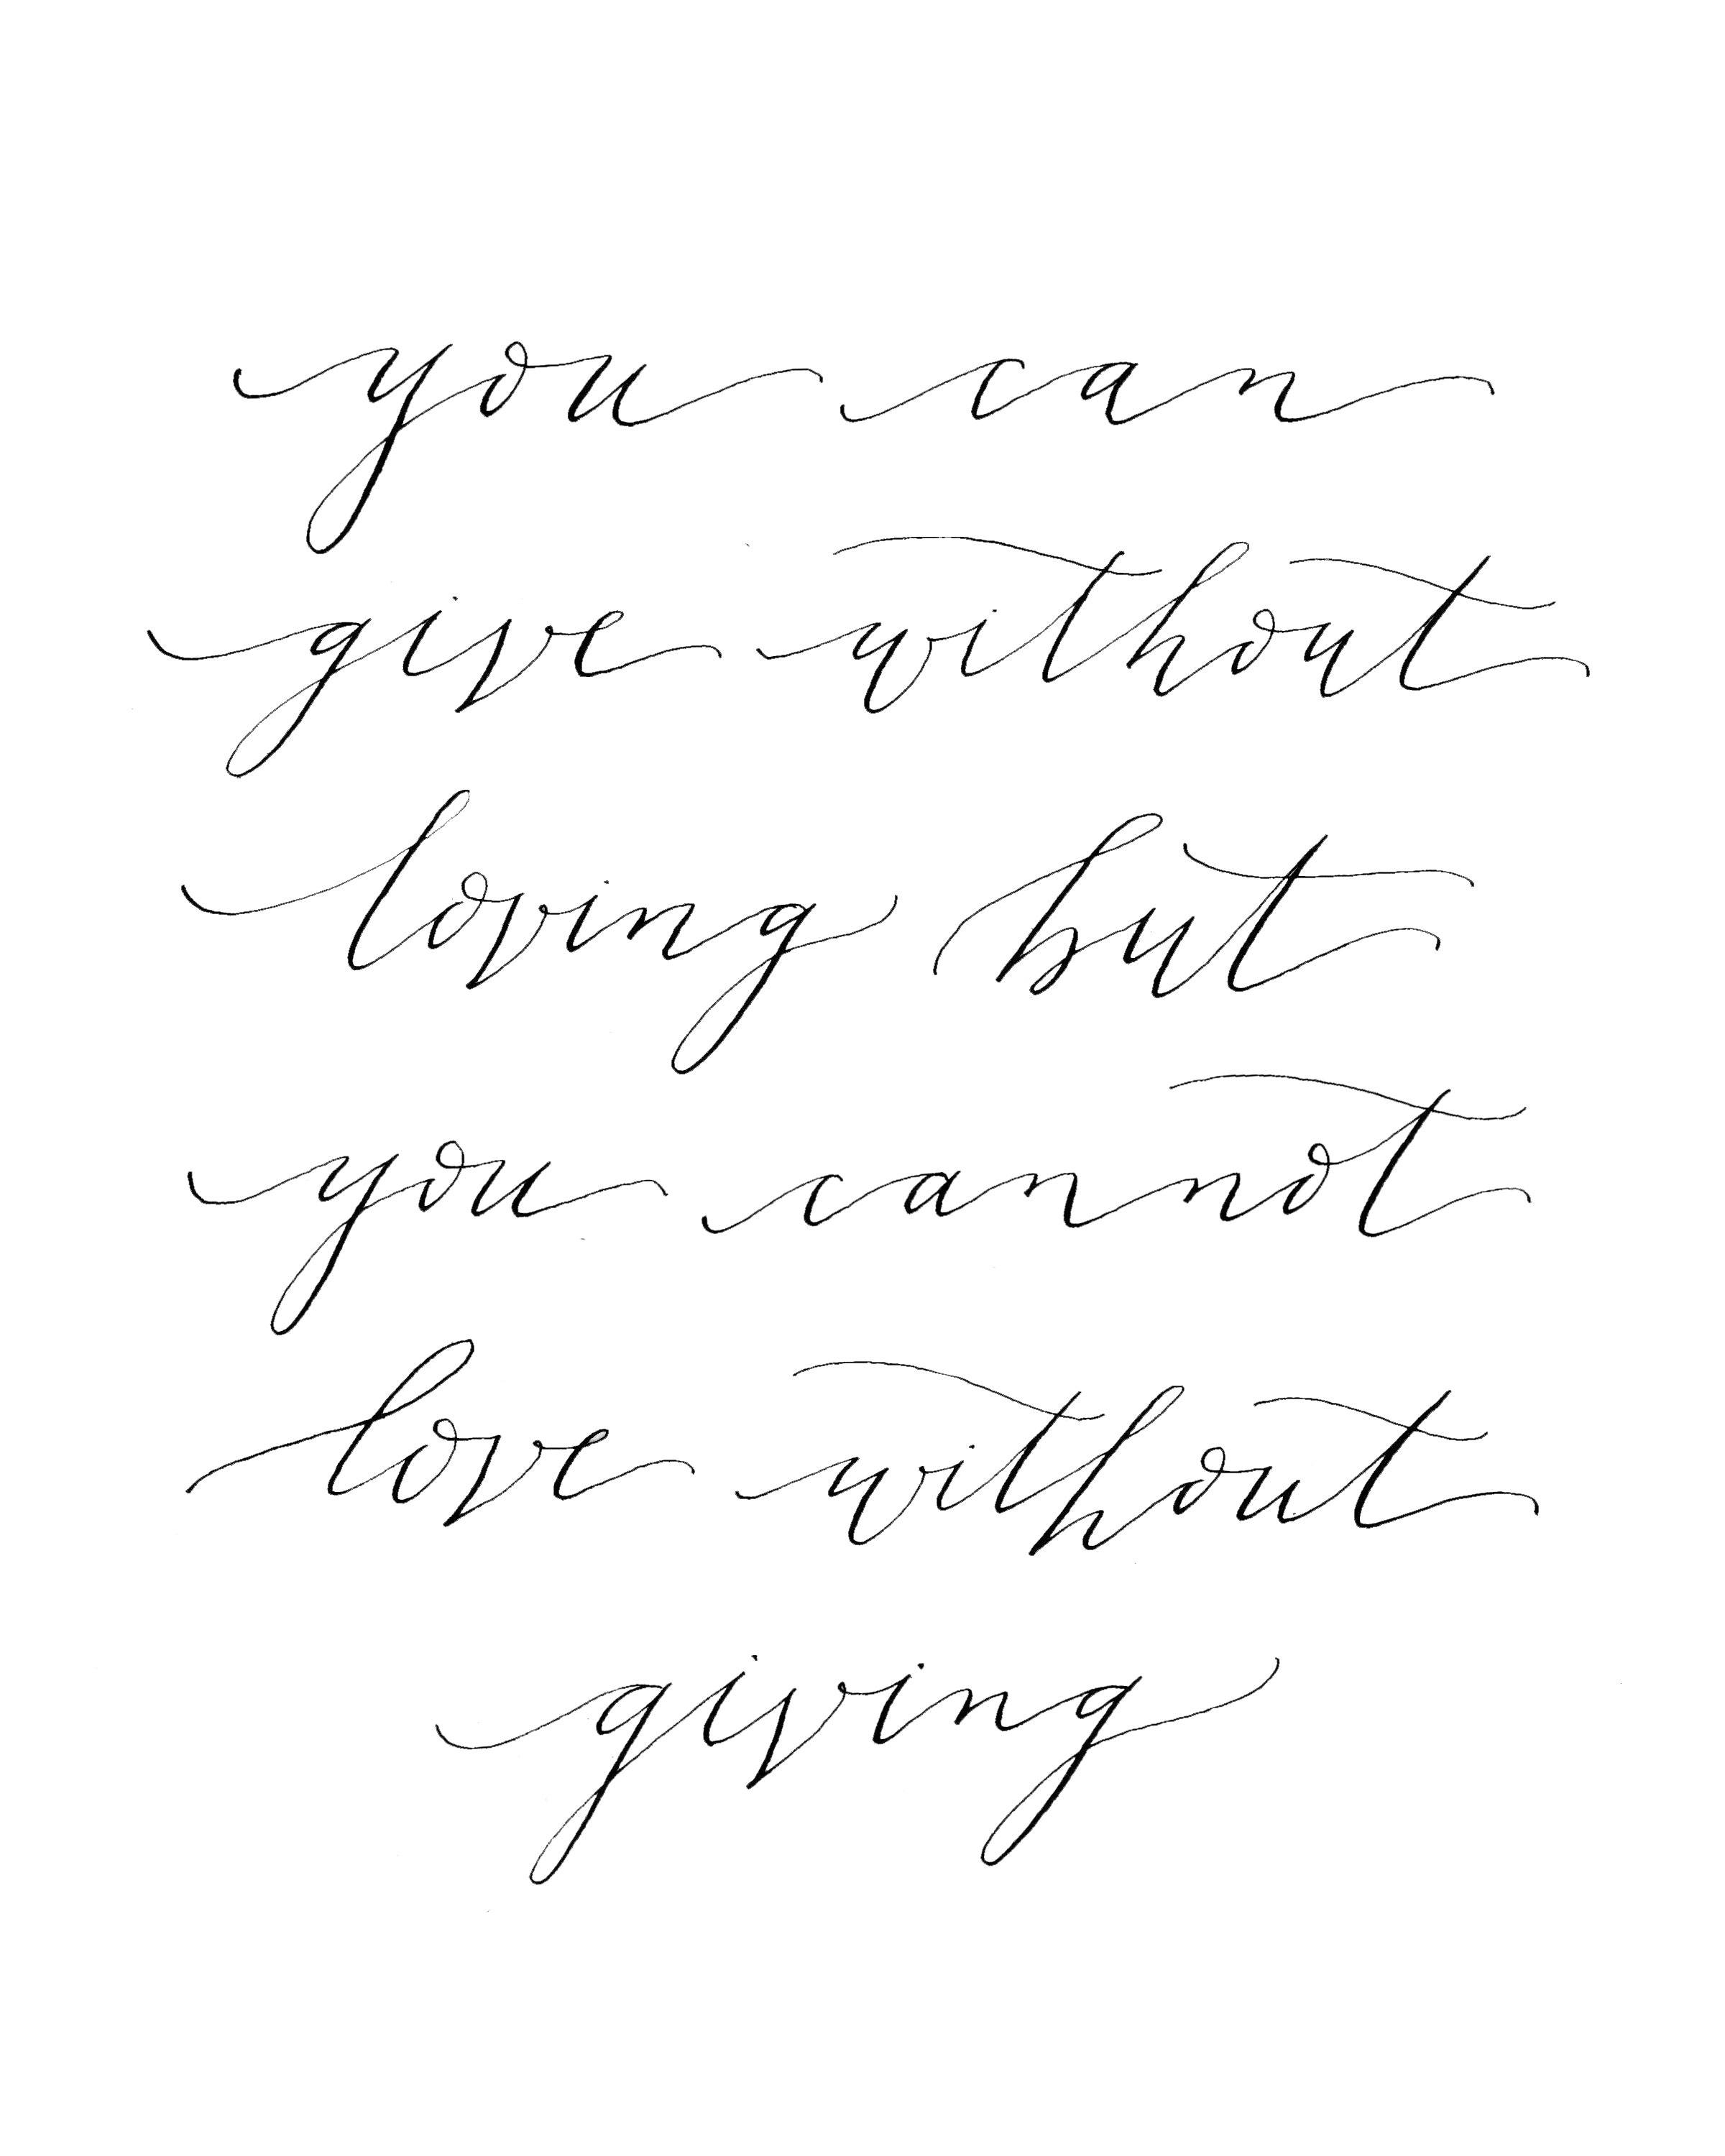 you can
give without
loving but
you cannot
love without
giving